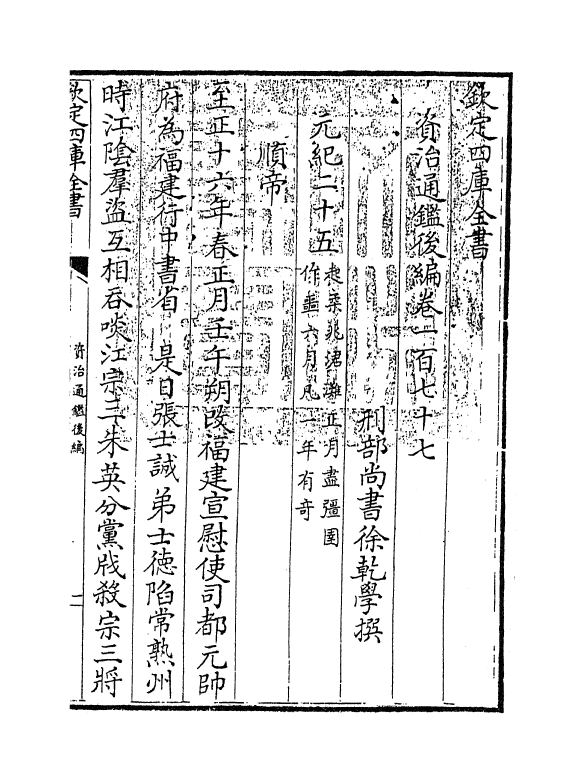 欽定四庫全書
資治通鑑後編卷一百七十七
刑部尚書徐乾學撰
元紀二十五
起柔兆涒灘正月盡彊圉
作噩六月凡一年有奇
順帝
至正十六年春正月壬午朔改福建宣慰使司都元帥
府為福建行中書省 是日張士誠弟士德陷常熟州
時江陰羣盜互相吞啖江宗三朱英分黨戕殺宗三將
欽定四庫全書
資治通鑑後編